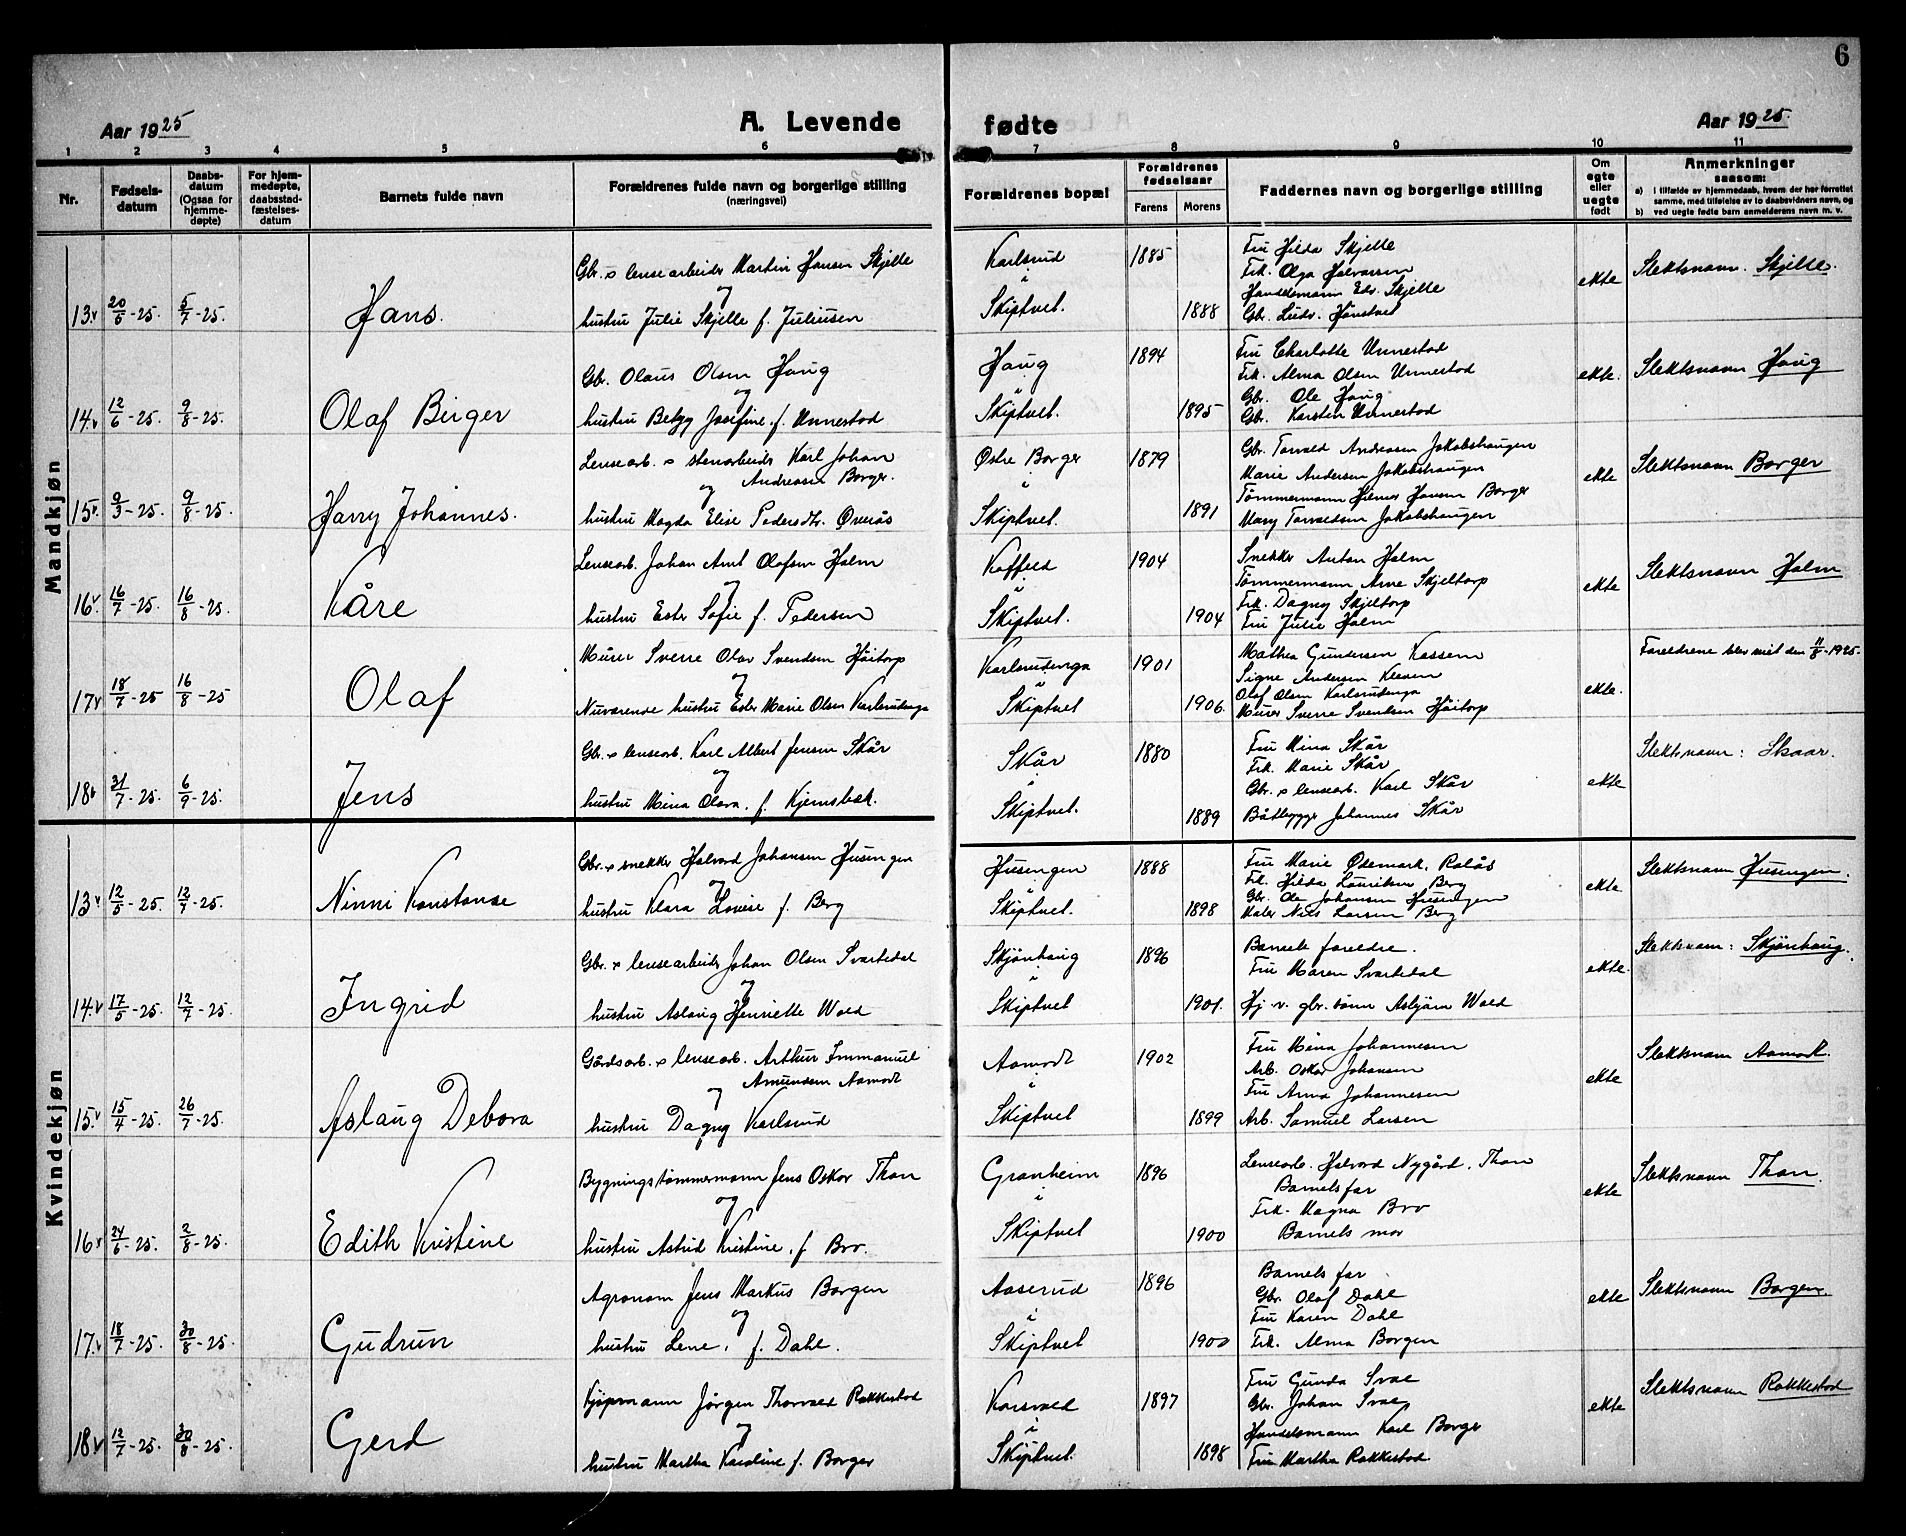 6
Aar 1925
A. Levende
fødte
Aar 1925.
1 2 3 4 5 6 7 8 9 10 11
Nr.
Fødsels-
datum
Daabs-
datum
(Ogsaa for
hjemme-
døpte)
For hjem-
medøpte,
daabsstad-
fæstelses-
datum
Barnets fulde navn
Forældrenes fulde navn og borgerlige stilling
(næringsvei)
Forældrenes bopæl
Forældrenes
fødselsaar
Farens
Morens
Faddernes navn og borgerlige stilling
Om
egte
eller
uegte
født
Anmerkninger
saasom:
a) i tilfælde av hjemmedaab, hvem der har forrettet
samme, med tilføielse av to daabsvidners navn, og
b) ved uegte fødte barn anmelderens navn m. v.
Mandkjøn
13. 20/5-25. 5/7-25.
Hans.
Gbr. & lensearbeider Martin Hansen Skjelle
og
hustru Julie Skjelle f. Juliusen
Karlsrud
i
Skiptvet.
1885
1888
Fru Hilda Skjelle
Frk. Olga Halvorsen
Handelsmann Edv. Skjelle
Gbr. Ludv. Hånstvet
ekte
Slektsnavn. Skjelle.
14. 12/6-25. 9/8-25.
Olaf Birger
Gbr. Olaus Olsen Haug
og
hustru Betzy Josefine. f. Unnestad
Haug
i
Skiptvet.
1894
1895
Fru Charlotte Unnestad
Frk. Alma Olsen Unnestad
Gbr. Ole Haug
Gbr. Karsten Unnestad
ekte.
Slektsnavn Haug
15. 9/3-25. 9/8-25.
Harry Johannes.
Lensearb. & stenarbeider Karl Johan
Andreasen Borger.
og
hustru Magda Elise Pedersdtr. Øverås
Østre Borger
i
Skiptvet.
1879
1891
Gbr. Torvald Andreasen Jakobshaugen
Marie Andersen Jakobshaugen
Tømmermann Hilmar Hansen Borger
Mary Torvaldsen Jakobshaugen
ekte
Slektsnavn Borger
16. 16/7-25. 16/8-25.
Kåre
Lensearb. Johan Arnt Olafsen Holm
og
hustru Ester Sofie f. Pedersen
Koffeld
i
Skiptvet.
1904
1904
Snekker Anton Holm
Tømmermann Arne Skjeltorp
Frk. Dagny Skjeltorp
Fru Julie Holm
ekte
Slektsnavn Holm
17. 18/7-25 16/8-25
Olaf
Murer Sverre Olav Svendsen Håitorp
og
Nuværende hustru Ester Marie Olsen Karlsrudenga
Karlsrudenga
i
Skiptvet
1901
1906.
Mathea Gundersen Kassem
Signe Andersen Kleven
Olaf Olsen Karlsrudenga
Murer Sverre Svendsen Håitorp
ekte.
Foreldrene blev viet den 11/8-1925.
18. 31/7-25. 6/9-25.
Jens
Gbr. & lensearb. Karl Albert Jensen Skår
og
hustru Mina Olava. f. Kjernsbæk.
Skår
i
Skiptvet.
1880
1889
Fru Mina Skår
Frk. Marie Skår
Gbr. & lensearb. Karl Skår
Båtbygger Johannes Skår
ekte
Slektsnavn: Skaar.
Kvindekjøn
13. 12/5-25. 12/7-25.
Ninni Konstanse
Gbr. & snekker Halvord Johansen Husengen
og
hustru Klara Lovise f. Berg
Husengen
i
Skiptvet.
1888
1898
Fru Marie Ødemark, Rolås
Frk. Hilda Lauritsen Berg
Gbr. Ole Johansen Husengen
Maler Nils Larsen Berg
ekte
Slektsnavn Husengen.
14. 17/5-25. 12/7-25.
Ingrid
Gbr. & lensearbeider Johan Olsen Svartedal
og
hustru Aslaug Henriette Wold
Skjønhaug
i
Skiptvet
1896
1901.
Barnets foreldre.
Fru Maren Svartedal
Hj. v. gbr. sønn Asbjørn Wold
ekte.
Slektsnavn: Skjønhaug.
15. 15/4-25. 26/7-25.
Aslaug Debora
Gårdsarb. & lensearb. Arthur Immanuel
Amundsen Aamodt
og
hustru Dagny Karlsrud
Aamodt
i
Skiptvet
1902
1899
Fru Mina Johannesen
Arb. Oskar Johansen
Fru Anna Johannesen
Arb. Samuel Larsen
ekte
Slektsnavn Aamodt.
16. 24/6-25. 2/8-25.
Edith Kristine
Bygningstømmermann Jens Oskar Thon
og
hustru Astrid Kristine. f. Bro.
Granheim
i
Skiptvet
1896
1900
Lensearb. Halvord Nygård. Thon
Barnets far
Frk. Magna Bro
Barnets mor
ekte
Slektsnavn Thon.
17. 18/7-25. 30/8-25.
Gudrun
Agronom Jens Markus Borgen
og
hustru Lene. f. Dahl.
Aaserud
i
Skiptvet
1896
1900
Barnets far
Gbr. Olaf Dahl
Fru Karen Dahl
Frk. Alma Borgen
ekte
Slektsnavn Borgen.
18. 12/7-25. 30/8-25.
Gerd
Kjøpmann Jørgen Thorvald Rakkestad
og
hustru Martha Karoline f. Borger
Korsvold
i
Skiptvet.
1897
1898
Fru Gunda Svae
Gbr. Johan Svae
Handelsmann Karl Borger
Fru Martha Rakkestad.
ekte
Slektsnavn Rakkestad